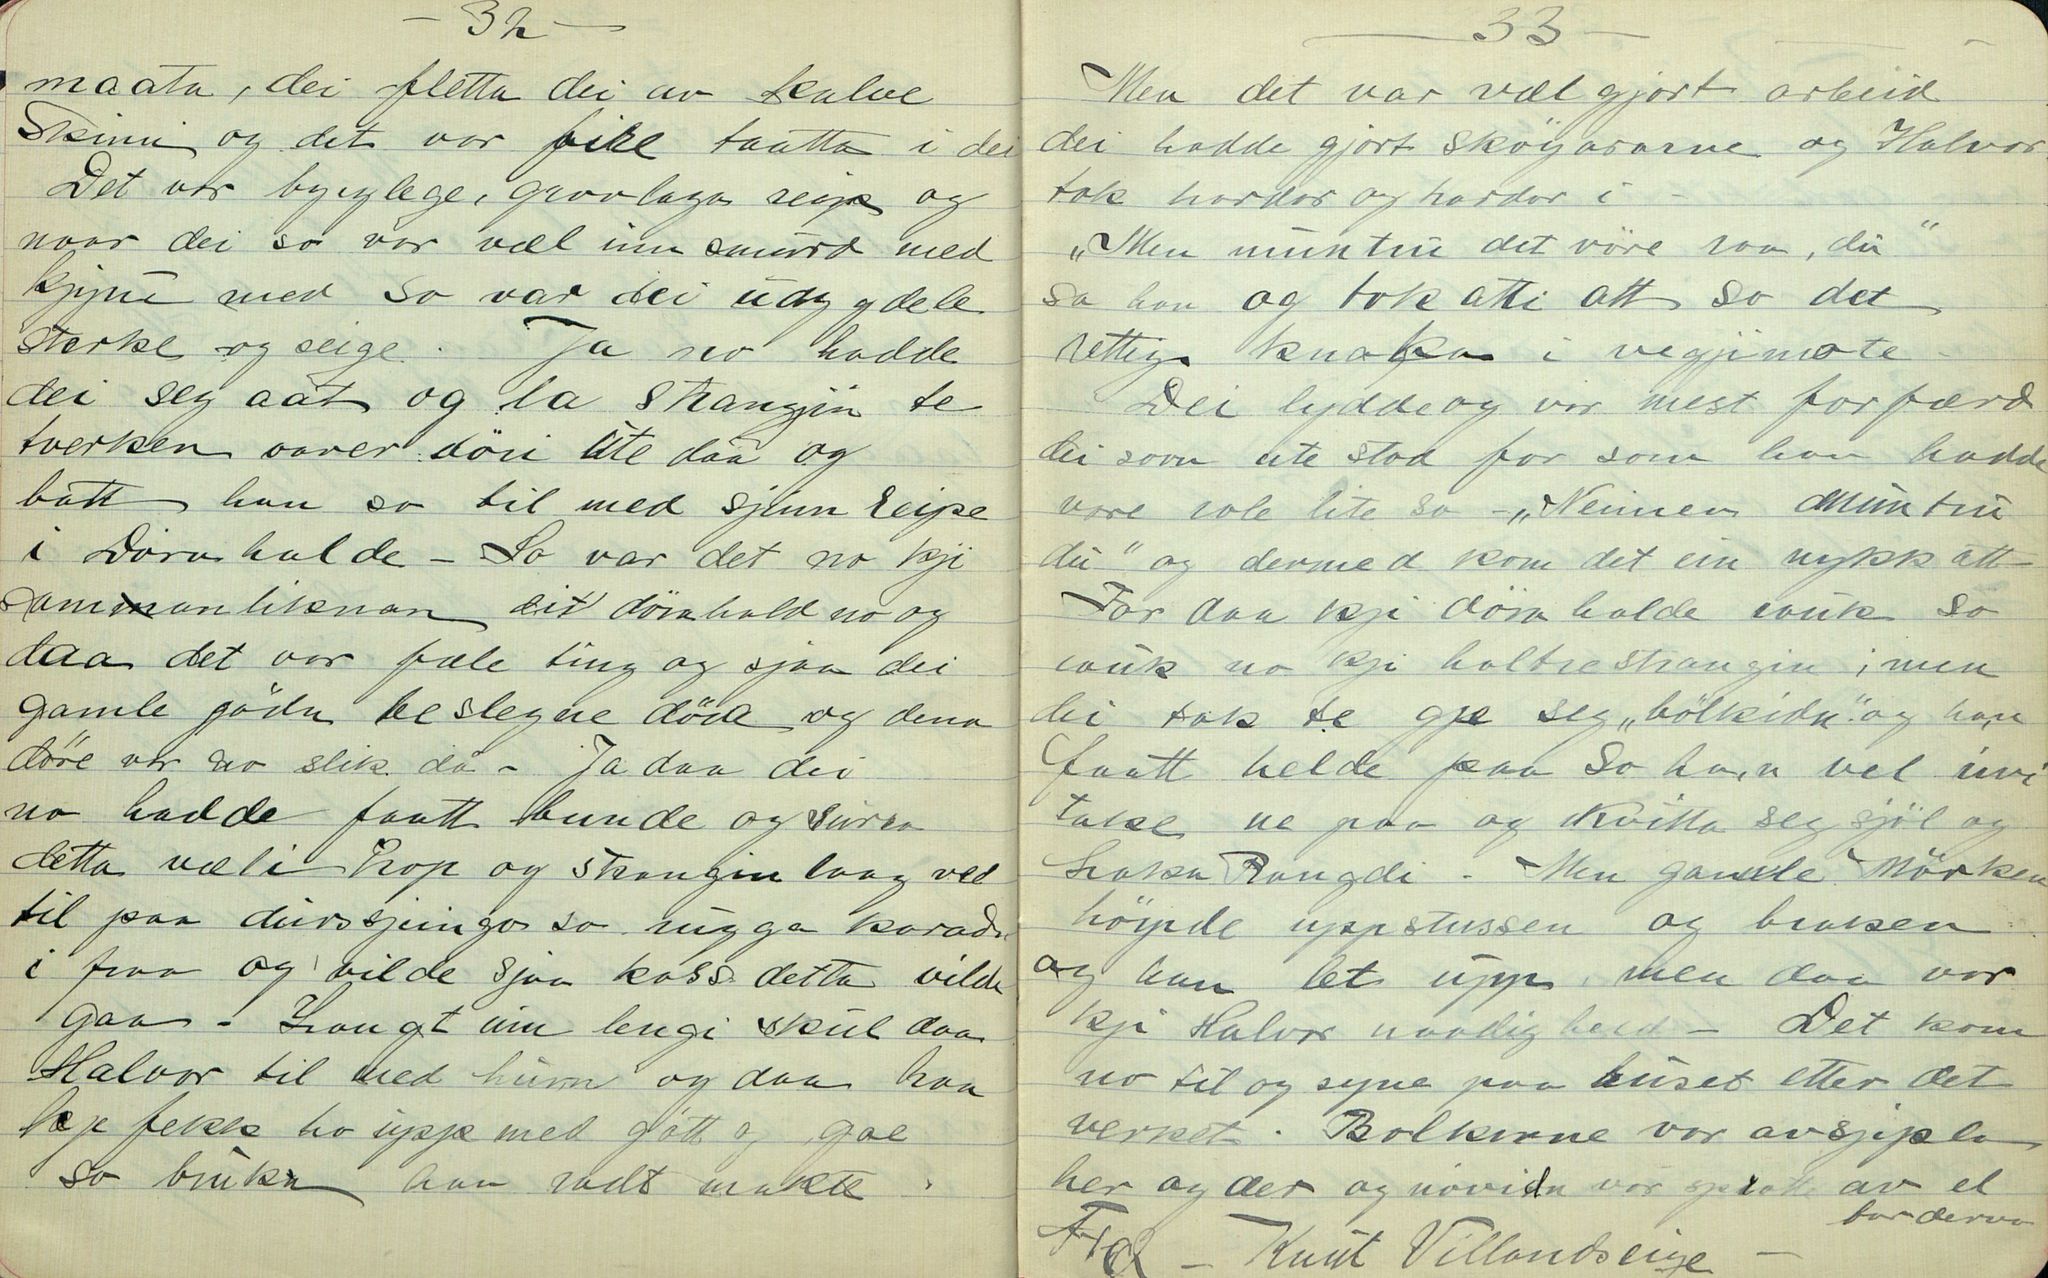 - 32 -
maata, dei fletta dei av kalve
Skinn og det var fire taatta i dei
Det var bygylege, grovlaga reip og
naar dei so var væl inn smurd med
kjyni med so var dei udygydele
sterke og seige. Ja no hadde
dei seg aat og la Stangjin te
tverken over döri ute daa og
batt han so til med sjinn reipe
i Dörahalde - So var det no kji
Sammanliknan dit dörahald no og
daa det var fæle ting og sjaa dei
gamle jödn beslegne döre og dena
döre var no slik då - Ja daa dei
no hadde faatt bunde og surra
detta væl i hop og stangin laag vel
til paa dursjeingo so rugga karadn
i fraa og vilde sjaa koss detta vilde
gaa - Langt um lengi skul daa
Halvor til med hurn og daa han
kje fekk ho upp med gött og gae
so bruka han radt makte.
- 33 -
Men det var væl gjort arbeid
dei hadde gjort sköyararne og Halvor
tok hardar og hardar i -
"Men muntru det vöre raa, du"
sa han og tok atti att so det
rettig knaka i vegjimote -
Dei lydde og var mest forfærd
dei som ute stod for som han hadde
vore role lite so - "Neimen Muntru
du" og dermed kom det ein nykk att
For daa kji döra halde rauk so
rauk no kji haltrestrangin, men
dei tok te gje seg "bölkidn" og han
faatt helde paa So han vel uvi
take ne paa og Kvitta seg sjöl og
Laka Rangdi - Men gamle Mörken
höyrde uppstussen og braken
og han let upp, men daa var
kji Halvor naadig heid - Det kom
no til og syne paa huset etter det
verket. Bolkerne var avsjipla
her og der og novidn var sprotte av el
bardervo
Fra - Knut Villandseige -